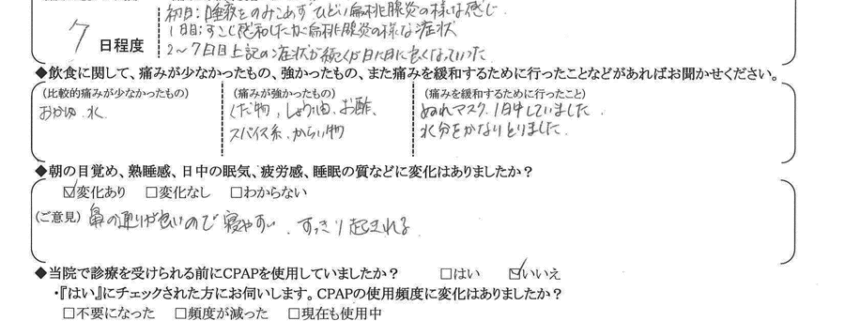 初日:唾液をのみこめずひどい扁桃腺炎の様な感じ
1日目:すこし緩和したが扁桃腺炎の様な症状
7 日程度
2〜7日目上記の症状が続くが日に日に良くなっていった
◆飲食に関して、痛みが少なかったもの、強かったもの、また痛みを緩和するために行ったことなどがあればお聞かせください。
(比較的痛みが少なかったもの) (痛みが強かったもの) (痛みを緩和するために行ったこと)
おかゆ 水 くだ物、しょう油、お酢、 ぬれマスク、1日中していました
スパイス系、からい物 水分をかなりとりました。
◆朝の目覚め、熟睡感、日中の眠気、疲労感、睡眠の質などに変化はありましたか?
☑変化あり □変化なし □わからない
(ご意見) 鼻の通りが良いので寝やすい、すっきり起きれる
◆当院で診療を受けられる前にCPAPを使用していましたか? □はい ☑いいえ
・『はい』にチェックされた方にお伺いします。CPAPの使用頻度に変化はありましたか?
□不要になった □頻度が減った □現在も使用中